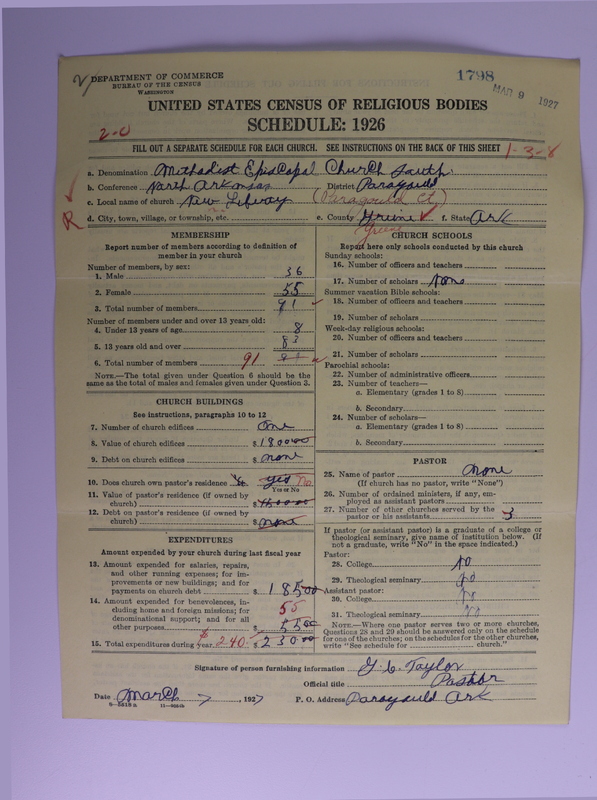 DEPARTMENT OF COMMERCE
BUREAU OF THE CENSUS
WASHINGTON
1798
MAR 9 1927
UNITED STATES CENSUS OF RELIGIOUS BODIES
SCHEDULE: 1926
2-0
FILL OUT A SEPARATE SCHEDULE FOR EACH CHURCH. SEE INSTRUCTIONS ON THE BACK OF THIS SHEET
1-3-8
a. Denomination Methodist Episcopal Church South
b. Conference North Arkansas District Paragould
c. Local name of church New Liberty (Paragould Ct)
R
d. City, town, village, or township, etc. e. County Greene f. State Ark
Greene
MEMBERSHIP
Report number of members according to definition of member in your church
Number of members, by sex:
1. Male 36
2. Female 55
3. Total number of members 91
Number of members under and over 13 years old:
4. Under 13 years of age 8
5. 13 years old and over 83
6. Total number of members 91 91
NOTE.—The total given under Question 6 should be the same as the total of males and females given under Question 3.
CHURCH BUILDINGS
See instructions, paragraphs 10 to 12
7. Number of church edifices One
8. Value of church edifices $ 1800.00
9. Debt on church edifices $ none
10. Does church own pastor's residence yes No
Yes or No
11. Value of pastor's residence (if owned by church) $
12. Debt on pastor's residence (if owned by church) $ none
EXPENDITURES
Amount expended by your church during last fiscal year
13. Amount expended for salaries, repairs, and other running expenses; for improvements or new buildings; and for payments on church debt $ 185.00
14. Amount expended for benevolences, including home and foreign missions; for denominational support; and for all other purposes 55 $ 55.00
15. Total expenditures during year $ 240. $ 230.00
CHURCH SCHOOLS
Report here only schools conducted by this church
Sunday schools:
16. Number of officers and teachers
17. Number of scholars None
Summer vacation Bible schools:
18. Number of officers and teachers
19. Number of scholars
Week-day religious schools:
20. Number of officers and teachers
21. Number of scholars
Parochial schools:
22. Number of administrative officers
23. Number of teachers—
a. Elementary (grades 1 to 8)
b. Secondary
24. Number of scholars—
a. Elementary (grades 1 to 8)
b. Secondary
PASTOR
25. Name of pastor None
(If church has no pastor, write "None")
26. Number of ordained ministers, if any, employed as assistant pastors
27. Number of other churches served by the pastor or his assistants 3
If pastor (or assistant pastor) is a graduate of a college or theological seminary, give name of institution below. (If not a graduate, write "No" in the space indicated.)
Pastor:
28. College No
29. Theological seminary No
Assistant pastor:
30. College No
31. Theological seminary No
NOTE.—Where one pastor serves two or more churches, Questions 28 and 29 should be answered only on the schedule for one of the churches; on the schedules for the other churches, write "See schedule for church."
Signature of person furnishing information J. C. Taylor
Official title Pastor
Date March 7, 1927 P. O. Address Paragould Ark